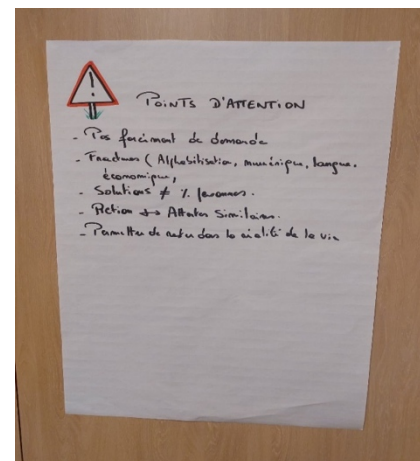 POINTS D'ATTENTION
- Pas forcément de demande
- Fractures (Alphabétisation, numérique, langue,
économique,
- Solutions ≠ % personnes.
- Action ↔ Attentes Similaires.
- Permettre de rester dans la réalité de la vie